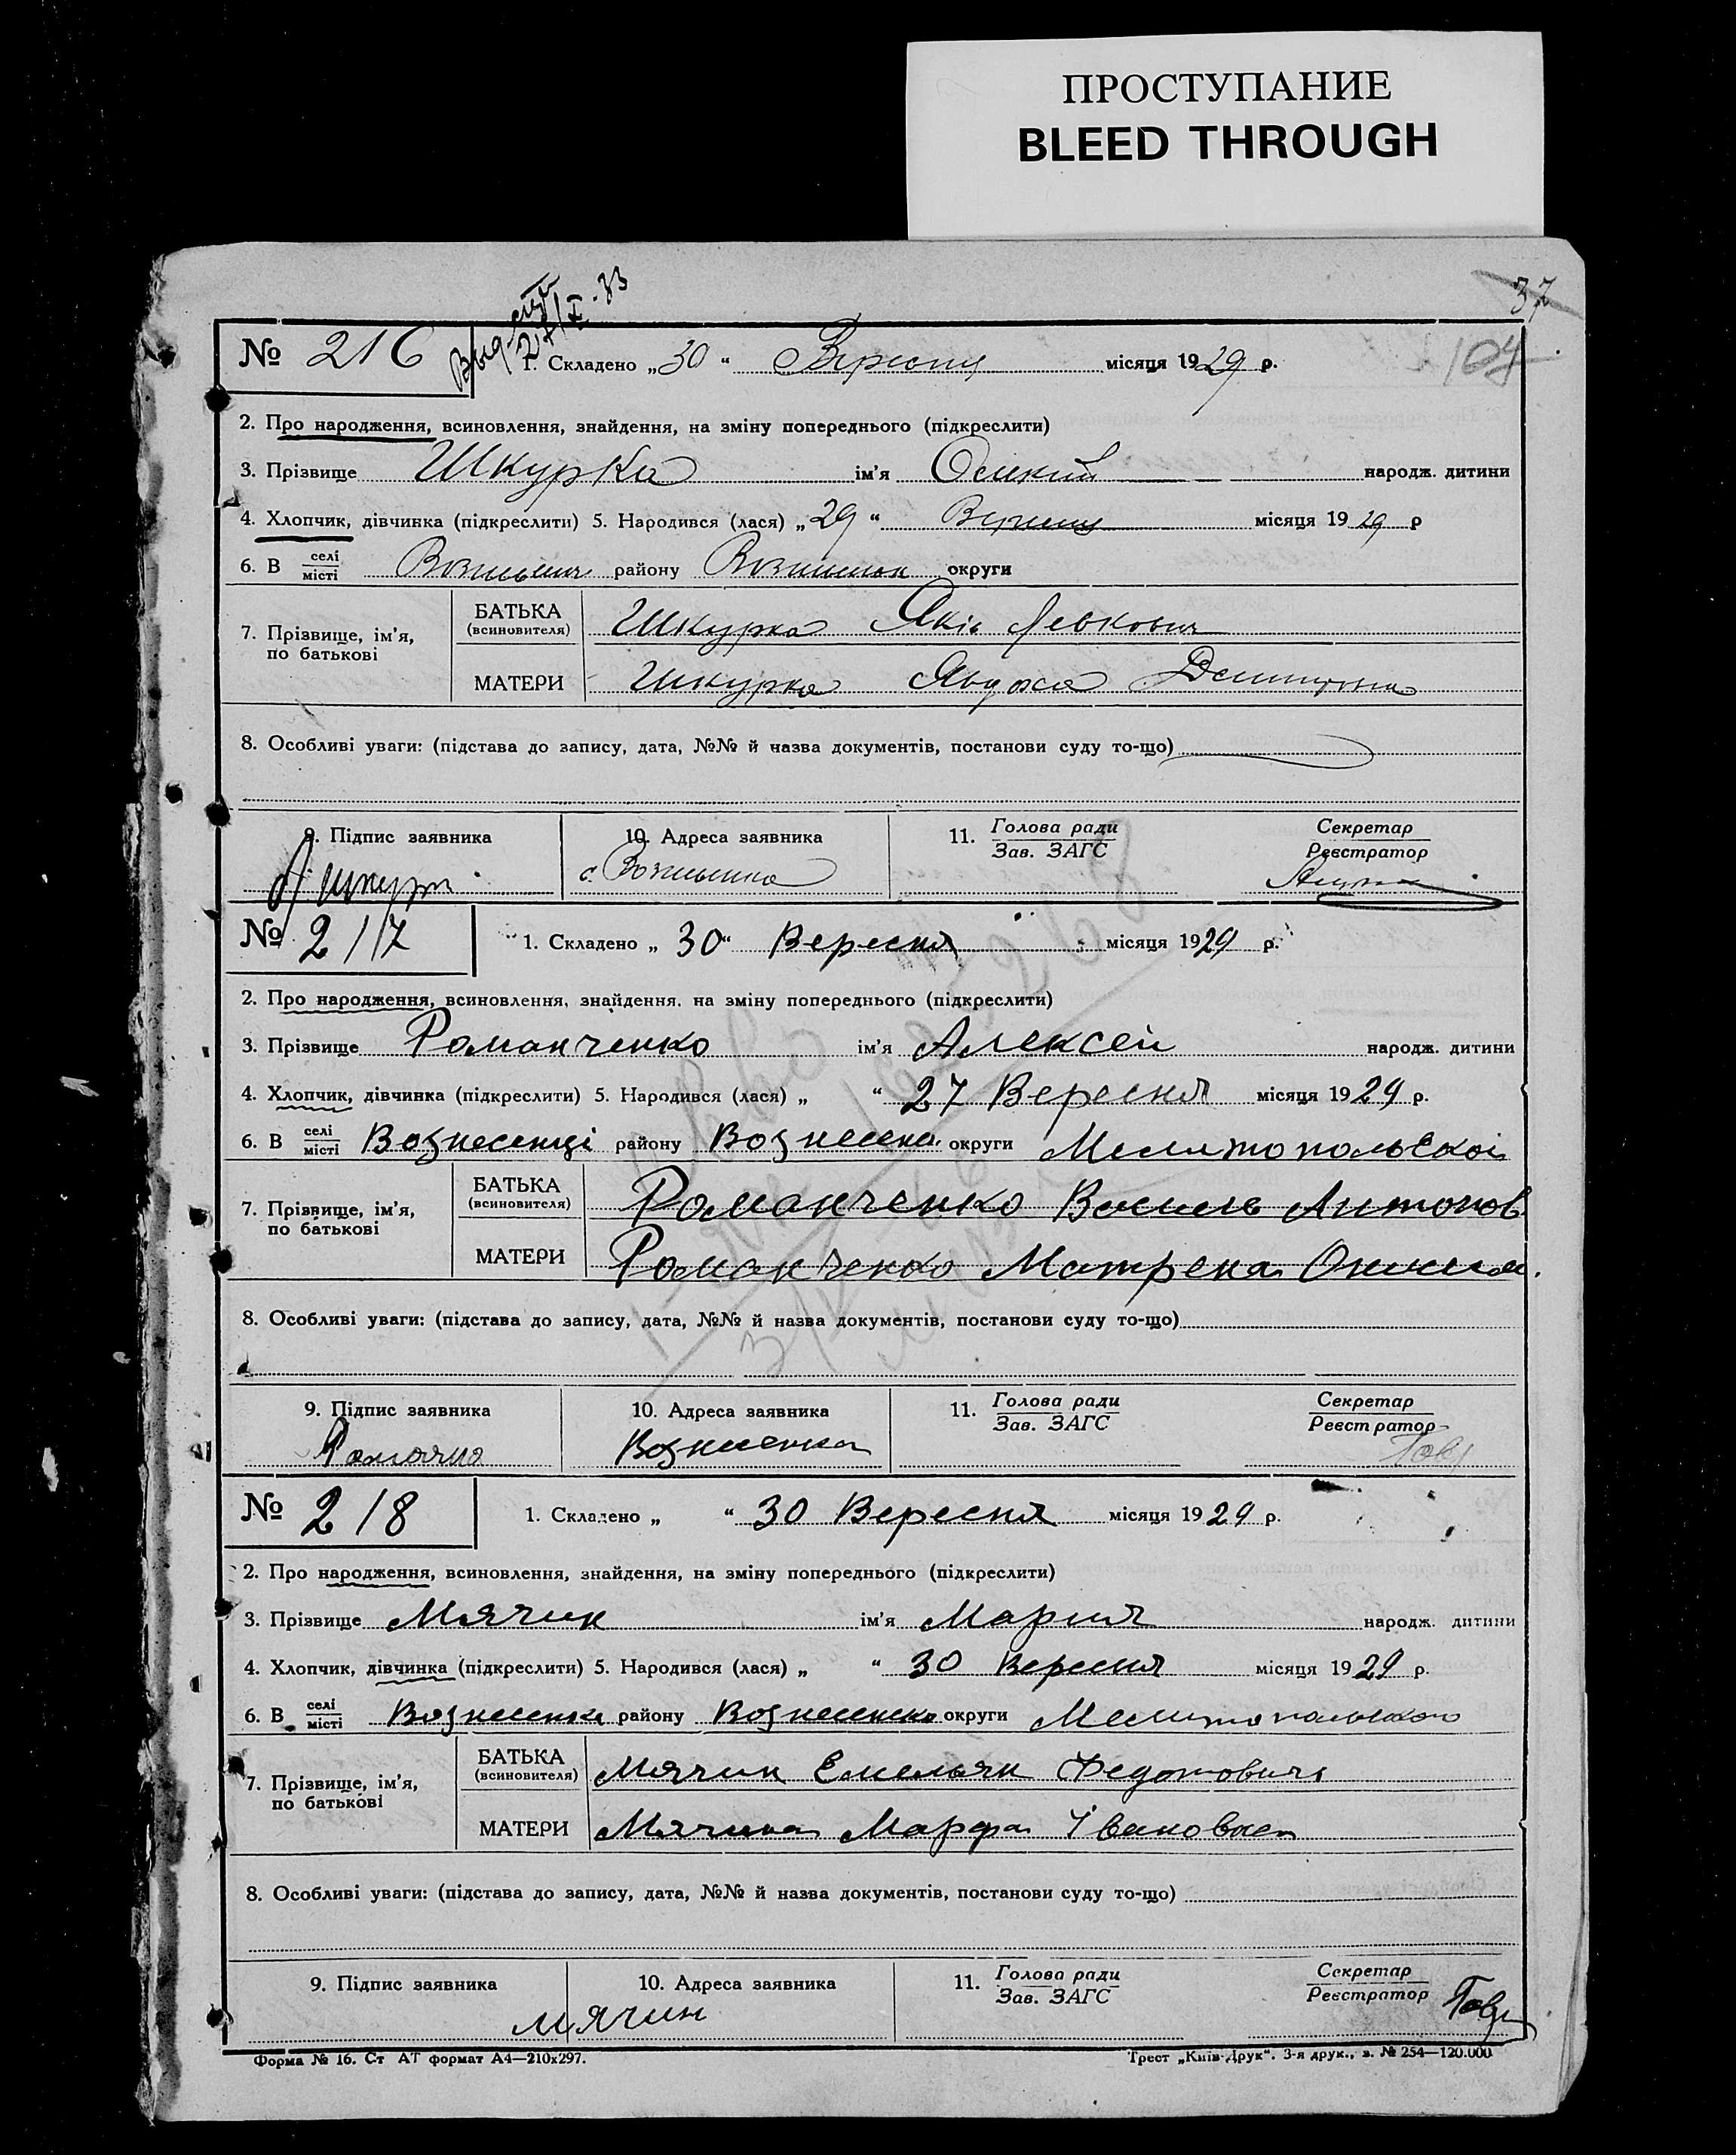 ПРОСТУПАНИЕ
BLEED THROUGH
37
104
№ 216 1. Складено „30“ Вересня місяця 1929 р.
2. Про народження, всиновлення, знайдення, на зміну попереднього (підкреслити)
3. Прізвище Шкурка ім’я народж. дитини
4. Хлопчик, дівчинка (підкреслити) 5. Народився (лася) „29“ Вересня місяця 1929 р
6. В селі/місті району округи
7. Прізвище, ім’я, по батькові
БАТЬКА (всиновителя) Шкурка Яків Левкович
МАТЕРИ Шкурка Явдоха
8. Особливі уваги: (підстава до запису, дата, №№ й назва документів, постанови суду то-що)
9. Підпис заявника 10. Адреса заявника 11. Голова ради/Зав. ЗАГС Секретар/Реєстратор
№ 217 1. Складено „30“ Вересня місяця 1929 р.
2. Про народження, всиновлення, знайдення, на зміну попереднього (підкреслити)
3. Прізвище Романченко ім’я Алексей народж. дитини
4. Хлопчик, дівчинка (підкреслити) 5. Народився (лася) „ “ 27 Вересня місяця 1929 р.
6. В селі/місті Вознесенці району Вознесенк. округи Мелитопольской
7. Прізвище, ім’я, по батькові
БАТЬКА (всиновителя) Романченко Василь Антонов
МАТЕРИ Романченко Матрена
8. Особливі уваги: (підстава до запису, дата, №№ й назва документів, постанови суду то-що)
9. Підпис заявника 10. Адреса заявника 11. Голова ради/Зав. ЗАГС Секретар/Реєстратор
Вознесенка
№ 218 1. Складено „ “ 30 Вересня місяця 1929 р.
2. Про народження, всиновлення, знайдення, на зміну попереднього (підкреслити)
3. Прізвище Мячин ім’я Мария народж. дитини
4. Хлопчик, дівчинка (підкреслити) 5. Народився (лася) „ “ 30 Вересня місяця 1929 р.
6. В селі/місті Вознесенка району Вознесенско округи
7. Прізвище, ім’я, по батькові
БАТЬКА (всиновителя) Мячин Емельян Федотович
МАТЕРИ Мячина Марфа Івановна
8. Особливі уваги: (підстава до запису, дата, №№ й назва документів, постанови суду то-що)
9. Підпис заявника 10. Адреса заявника 11. Голова ради/Зав. ЗАГС Секретар/Реєстратор
Мячин
Форма № 16. Ст АТ формат А4—210х297. Трест „Київ-Друк“. 3-я друк., з. № 254—120.000